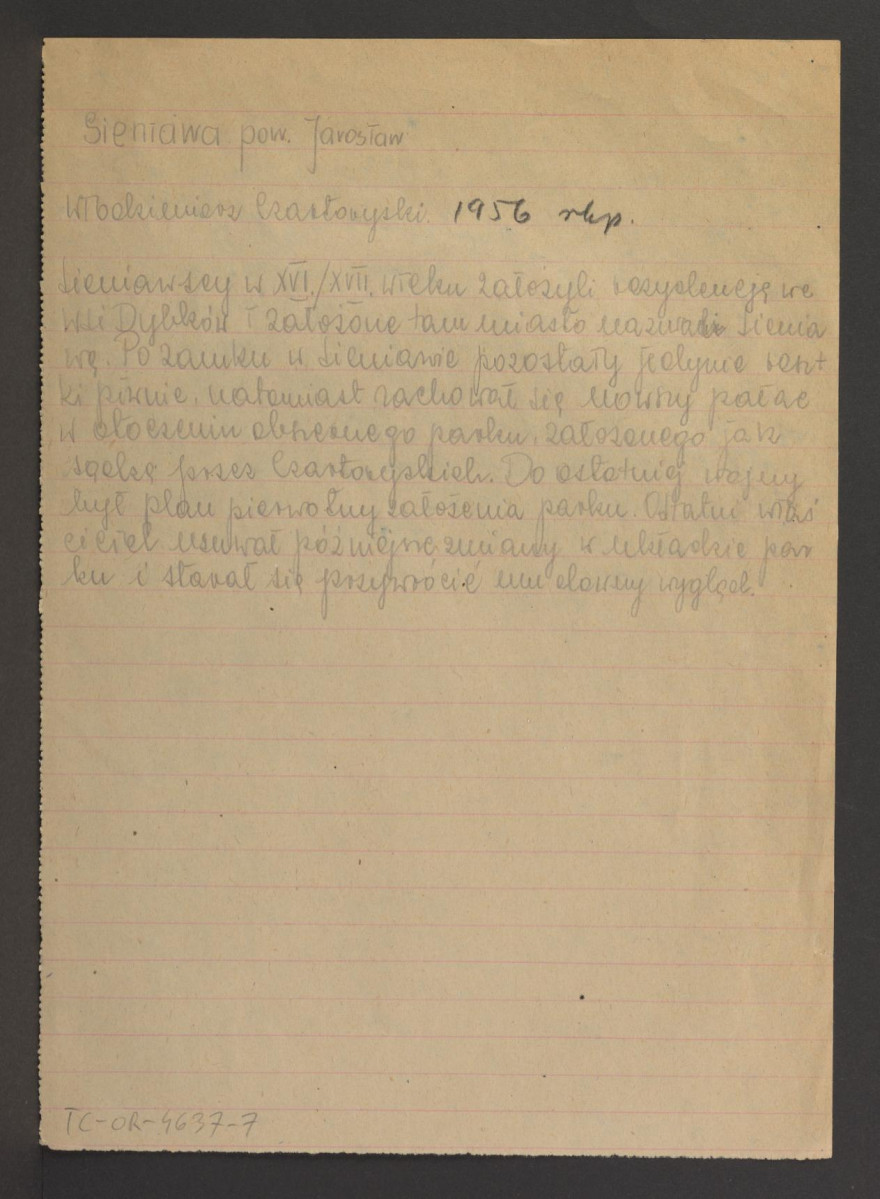 Sieniawa pow. Jarosław
Włodzimierz Czartoryski 1956 rkp.
Sieniawscy w XVI./XVII. wieku założyli rezydencję we
wsi Dybków i założone tam miasto nazwali Sienia
wą. Po zamku w Sieniawie pozostały jedynie reszt
ki piwnic, natomiast zachował się nowszy pałac
w otoczeniu obszernego parku, założonego jak
sądzę przez Czartoryskich. Do ostatniej wojny
był plan pierwotny założenia parku. Ostatni właś
ciciel usuwał późniejsze zmiany w układzie par
ku i starał się przywrócić mu dawny wygląd.
TC-OR-4637-7